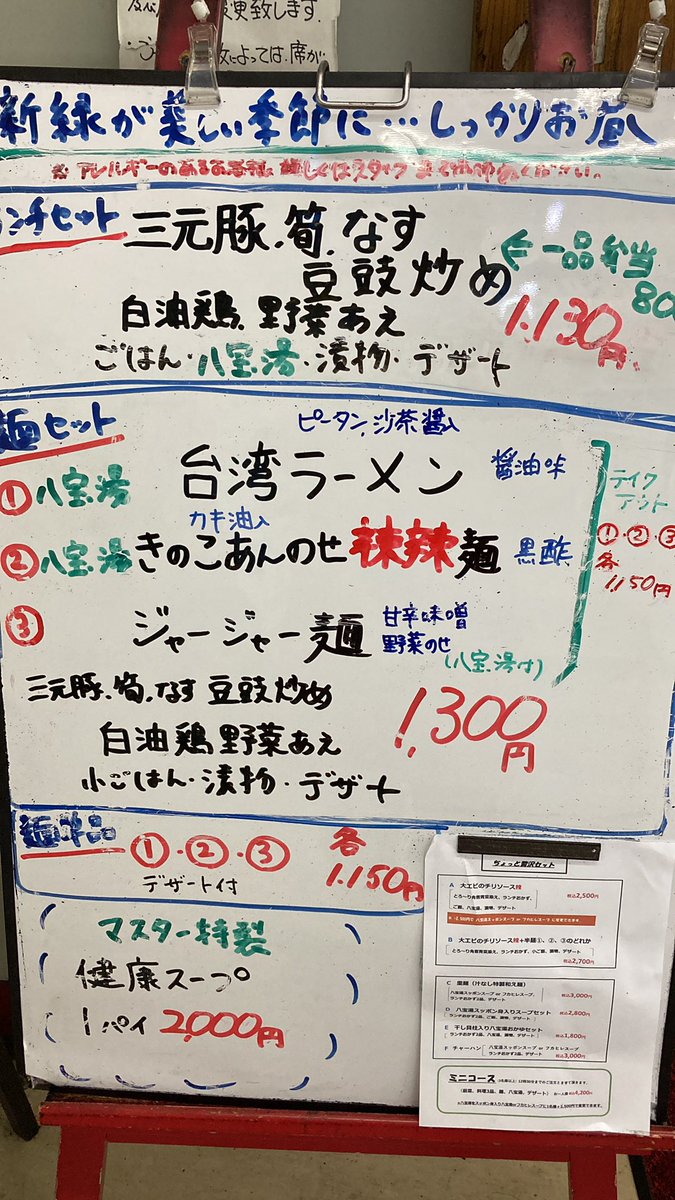 変更致します.
によっては、席が
新緑が美しい季節に…しっかりお昼
※アレルギーのあるお客様は
ランチセット 三元豚、筍、なす
豆豉炒め ←一品弁当
白油鶏 野菜あえ 1,130円
ごはん・八宝湯・漬物・デザート
麺セット ピータン,沙茶醤入
①八宝湯 台湾ラーメン 醤油味
カキ油入
②八宝湯 きのこあんのせ辣辣麺 黒酢
③ ジャージャー麺 甘辛味噌
野菜のせ
(八宝湯付)
テイク
アウト
①・②・③
各
1,150円
三元豚、筍、なす 豆豉炒め
白油鶏 野菜あえ
小ごはん・漬物・デザート
1,300円
麺単品 ①・②・③ 各
デザート付 1,150円
マスター特製
健康スープ
1パイ 2,000円
ちょっと贅沢セット
A 大エビのチリソース辣 税込2,500円
B 大エビのチリソース辣+半麺①、②、③のどれか
税込2,700円
税込3,000円
D 八宝湯スッポン身入りスープセット 税込2,800円
E 干し貝柱入り八宝湯おかゆセット
税込1,800円
F チャーハン 八宝湯スッポンスープ or フカヒレスープ
税込3,000円
ミニコース
(前菜、料理3品、麺、八宝湯、デザート) お一人様 税込4,200円